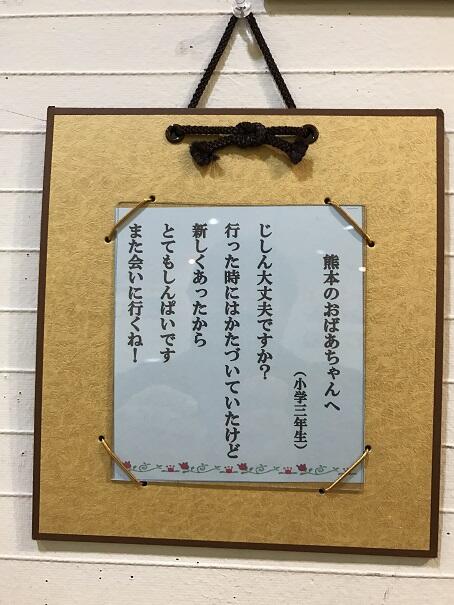 熊本のおばあちゃんへ
（小学三年生）
じしん大丈夫ですか？
行った時にはかたづいていたけど
新しくあったから
とてもしんぱいです
また会いに行くね！